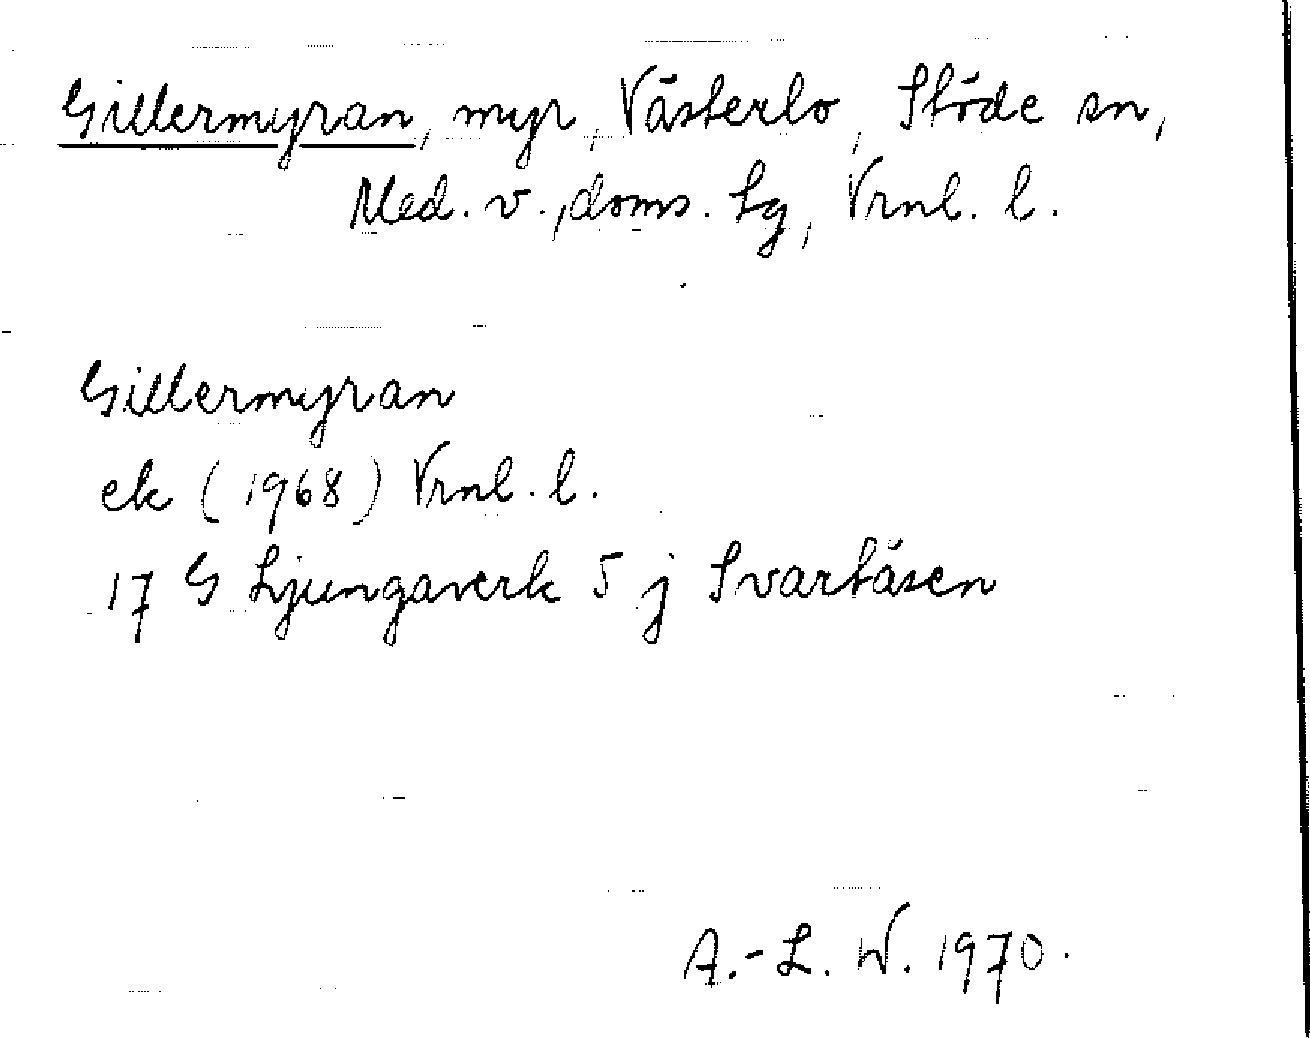 Gillermyran, myr, Västerlo, Stöde sn,
Med. v., doms. Lg, Vrnl. l.
Gillermyran
ek (1968) Vrnl. l.
17 G Ljungaverk 5 j Svartåsen
A.-L. W. 1970.